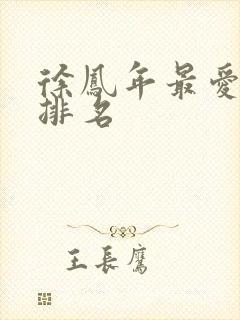 徐鳳年最愛
排名
王長鷹